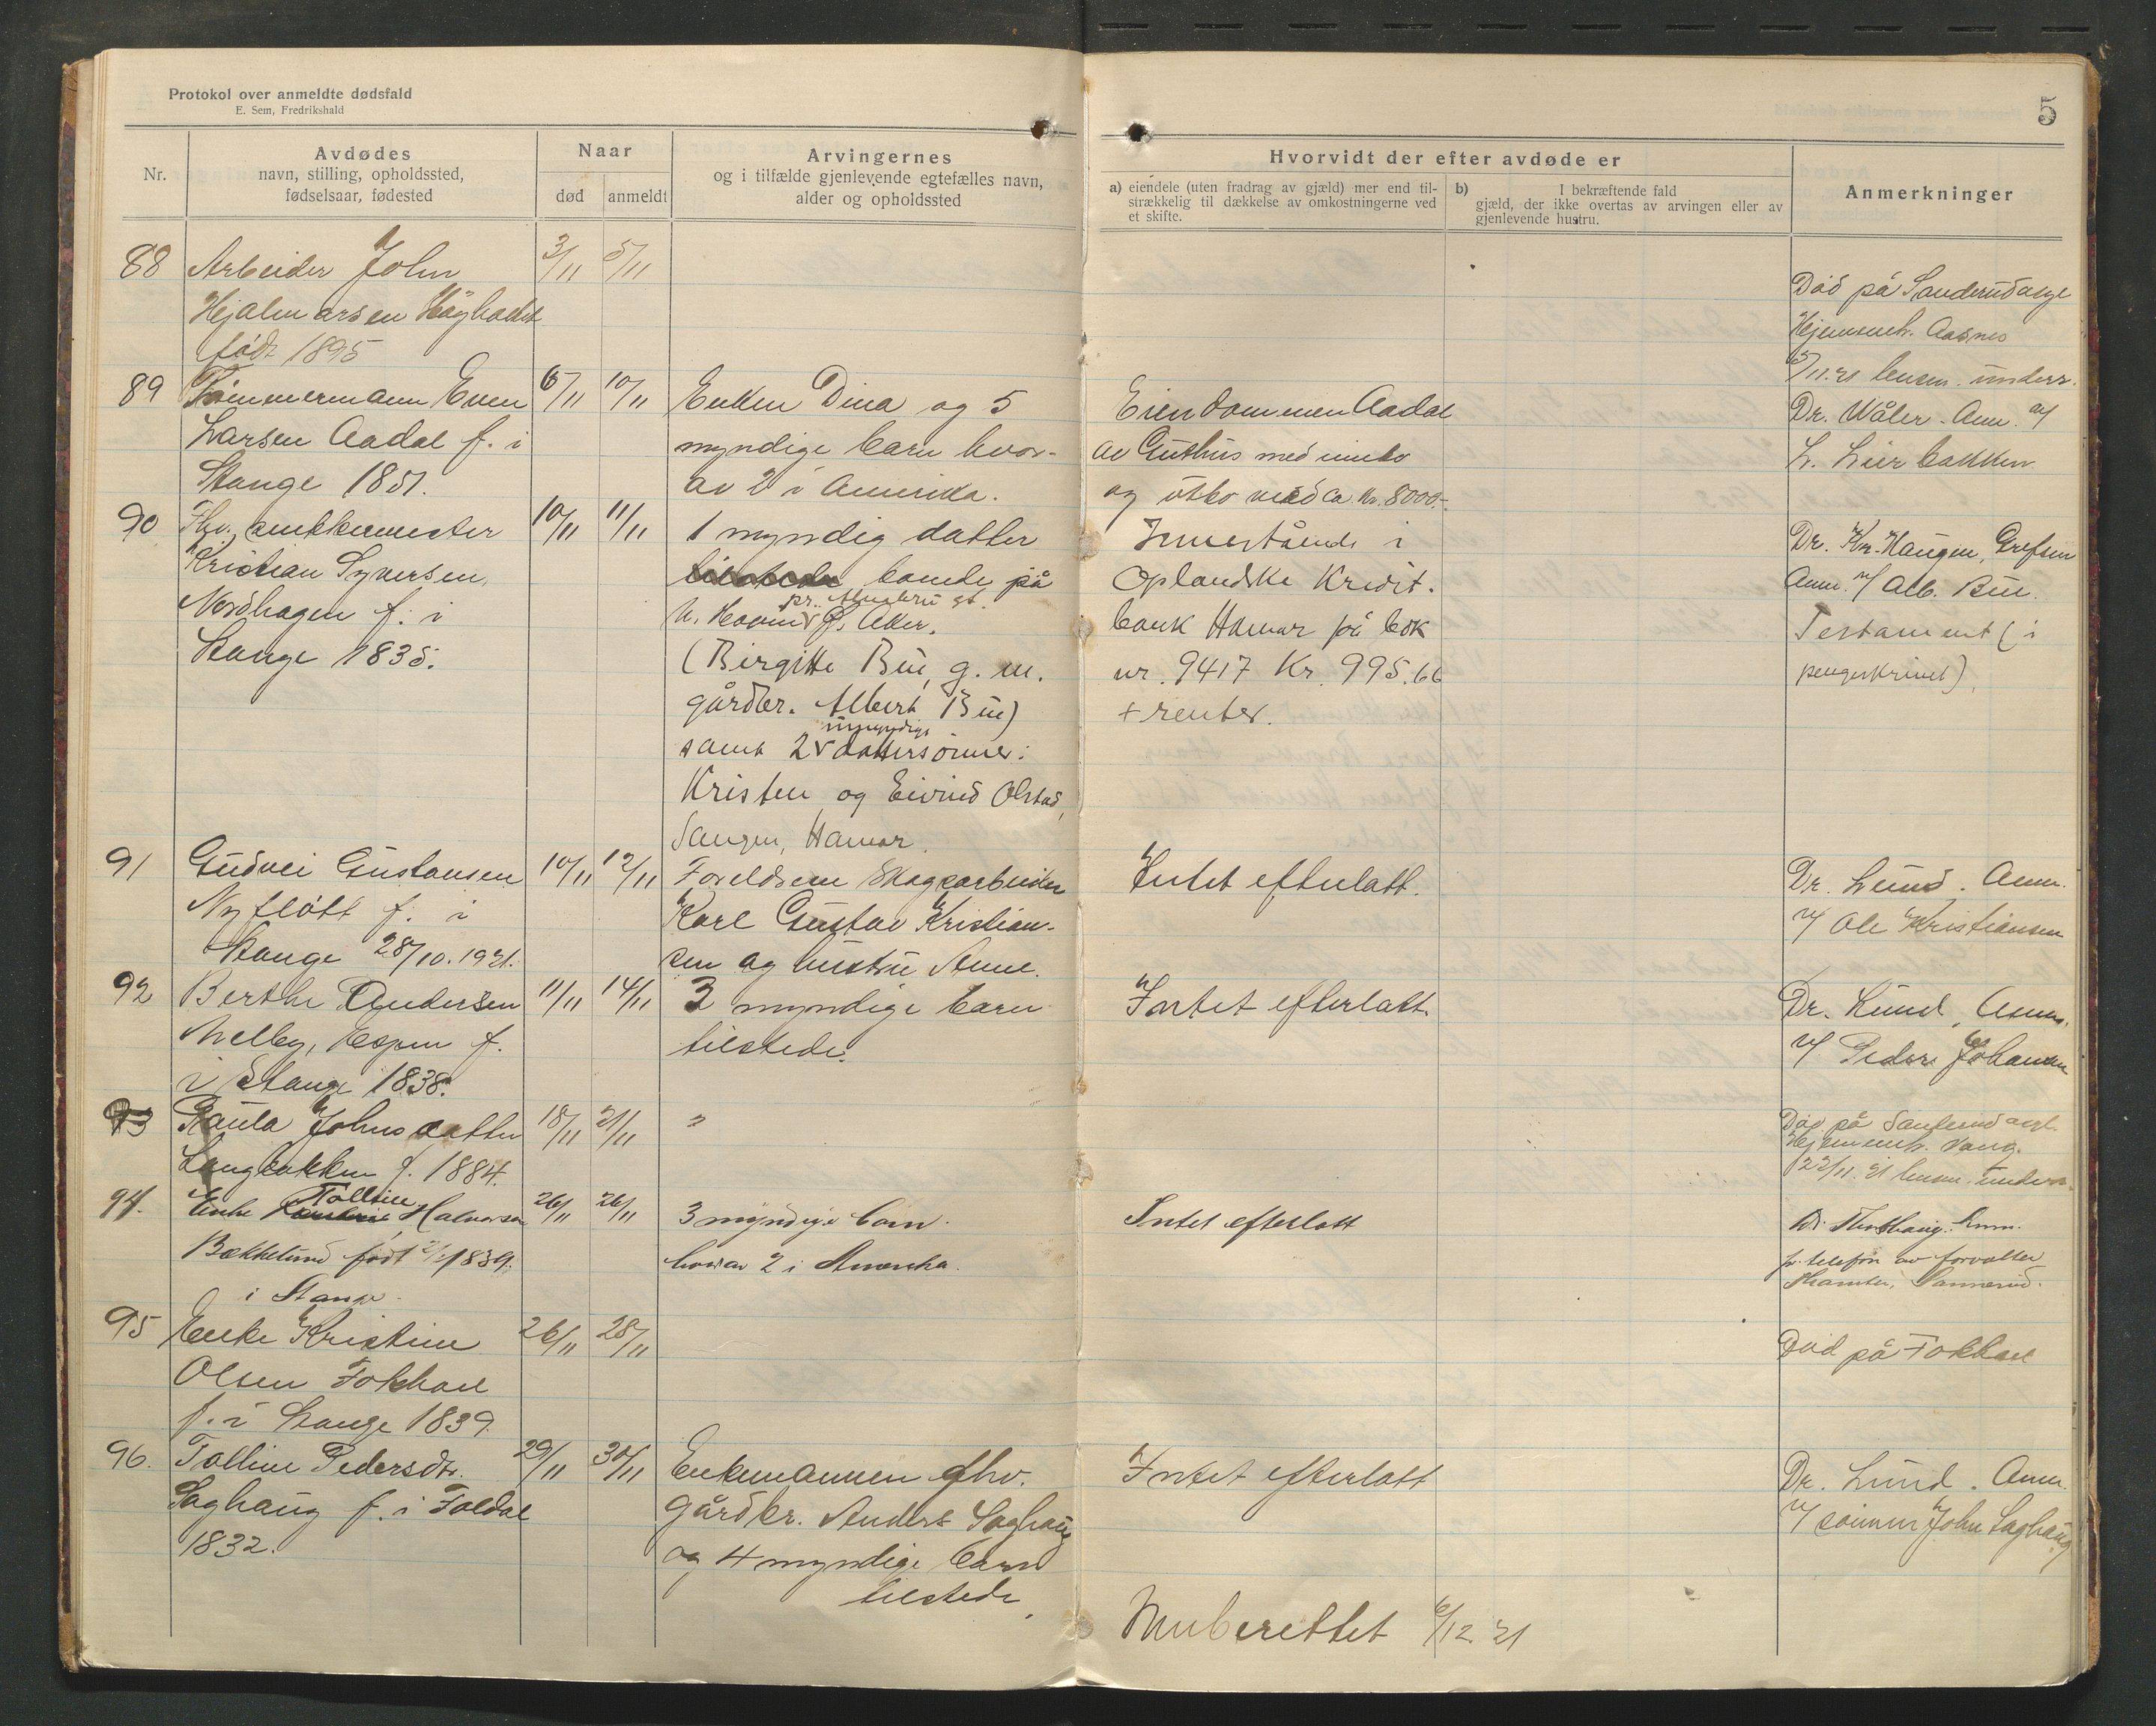 Protokol over anmeldte dødsfald
E. Sem, Fredrikshald
5
Nr.
Avdødes
navn, stilling, opholdssted,
fødselsaar, fødested
Naar
død
anmeldt
Arvingernes
og i tilfælde gjenlevende egtefælles navn,
alder og opholdssted
Hvorvidt der efter avdøde er
a) eiendele (uten fradrag av gjæld) mer end til-
strækkelig til dækkelse av omkostningerne ved
et skifte.
b) I bekræftende fald
gjæld, der ikke overtas av arvingen eller av
gjenlevende hustru.
Anmerkninger
88
Arbeider John
Hjalmarsen
født 1895
3/11
5/11
Død på Sanderud asyl
Hjemmeh. Aasnes
5/11.21 lensm. underr.
89
Tømmermann Even
Larsen Aadal f. i
Stange 1851.
6/11
10/11
Enken Dina og 5
myndige barn hvor-
av 2 i Amerika.
Eiendommen Aadal
av Guthus med innbo
og utbo verd ca. kr. 8000.-
Dr. Wåler. Anm. av
L. Lierbakken
90
Fhv. snekkermester
Kristian Syversen,
Nordhagen f. i
Stange 1835.
10/11
11/11
1 myndig datter
tilstede boende på
pr.
N. Ø. Aker.
(Birgitte Bui, g. m.
gårdbr. Albert Bui)
umyndige
samt 2 v dattersønner:
Kristen og Eivind Olstad,
Sangen, Hamar.
Innestående i
Oplandske Kredit.
bank Hamar på bok
nr. 9417 Kr. 995.66
+ renter.
Dr. Kr. Haugen, Grefsen
Anm. v/ Alb. Bui.
Testament (i
pengeskrinet).
91
Gudvei Gustavsen
Nyfløtt f. i
Stange 28/10.1921.
10/11
12/11
Foreldrene Skogsarbeider
Karl Gustav Kristian-
sen og hustru Anne.
Intet efterlatt.
Dr. Lund. Anm.
v/ Ole Kristiansen
92
Berthe Andersen
Melby, Espen f.
i Stange 1838.
11/11
14/11
3 myndige barn
tilstede.
Intet efterlatt.
Dr. Lund, Anm.
v/ Peder Johansen
93
Paula Johnsdatter
Langbakken f. 1884.
18/11
21/11
"
Død på Sanderud asyl.
Hjemmeh. Vang.
22/11.21 lensm. underr.
94.
Tolline
Enke Halvorsen
Bækkelund født 1839.
i Stange.
26/11
26/11
3 myndige barn.
hvorav 2 i Amerika.
Intet efterlatt
Dr. Anm.
pr. telefon av forvalter
95
Enke Kristine
Olsen Fokhol
f. i Stange 1839.
26/11
28/11
Død på Fokhol
96.
Tolline Pedersdtr.
Saghaug f. i Foldal
1832.
29/11
30/11
Enkemannen fhv.
gårdbr. Anders Saghaug
og 4 myndige barn
tilstede.
Intet efterlatt
Dr. Lund. Anm.
v/ sønnen John Saghaug
Innberettet 6/12.21